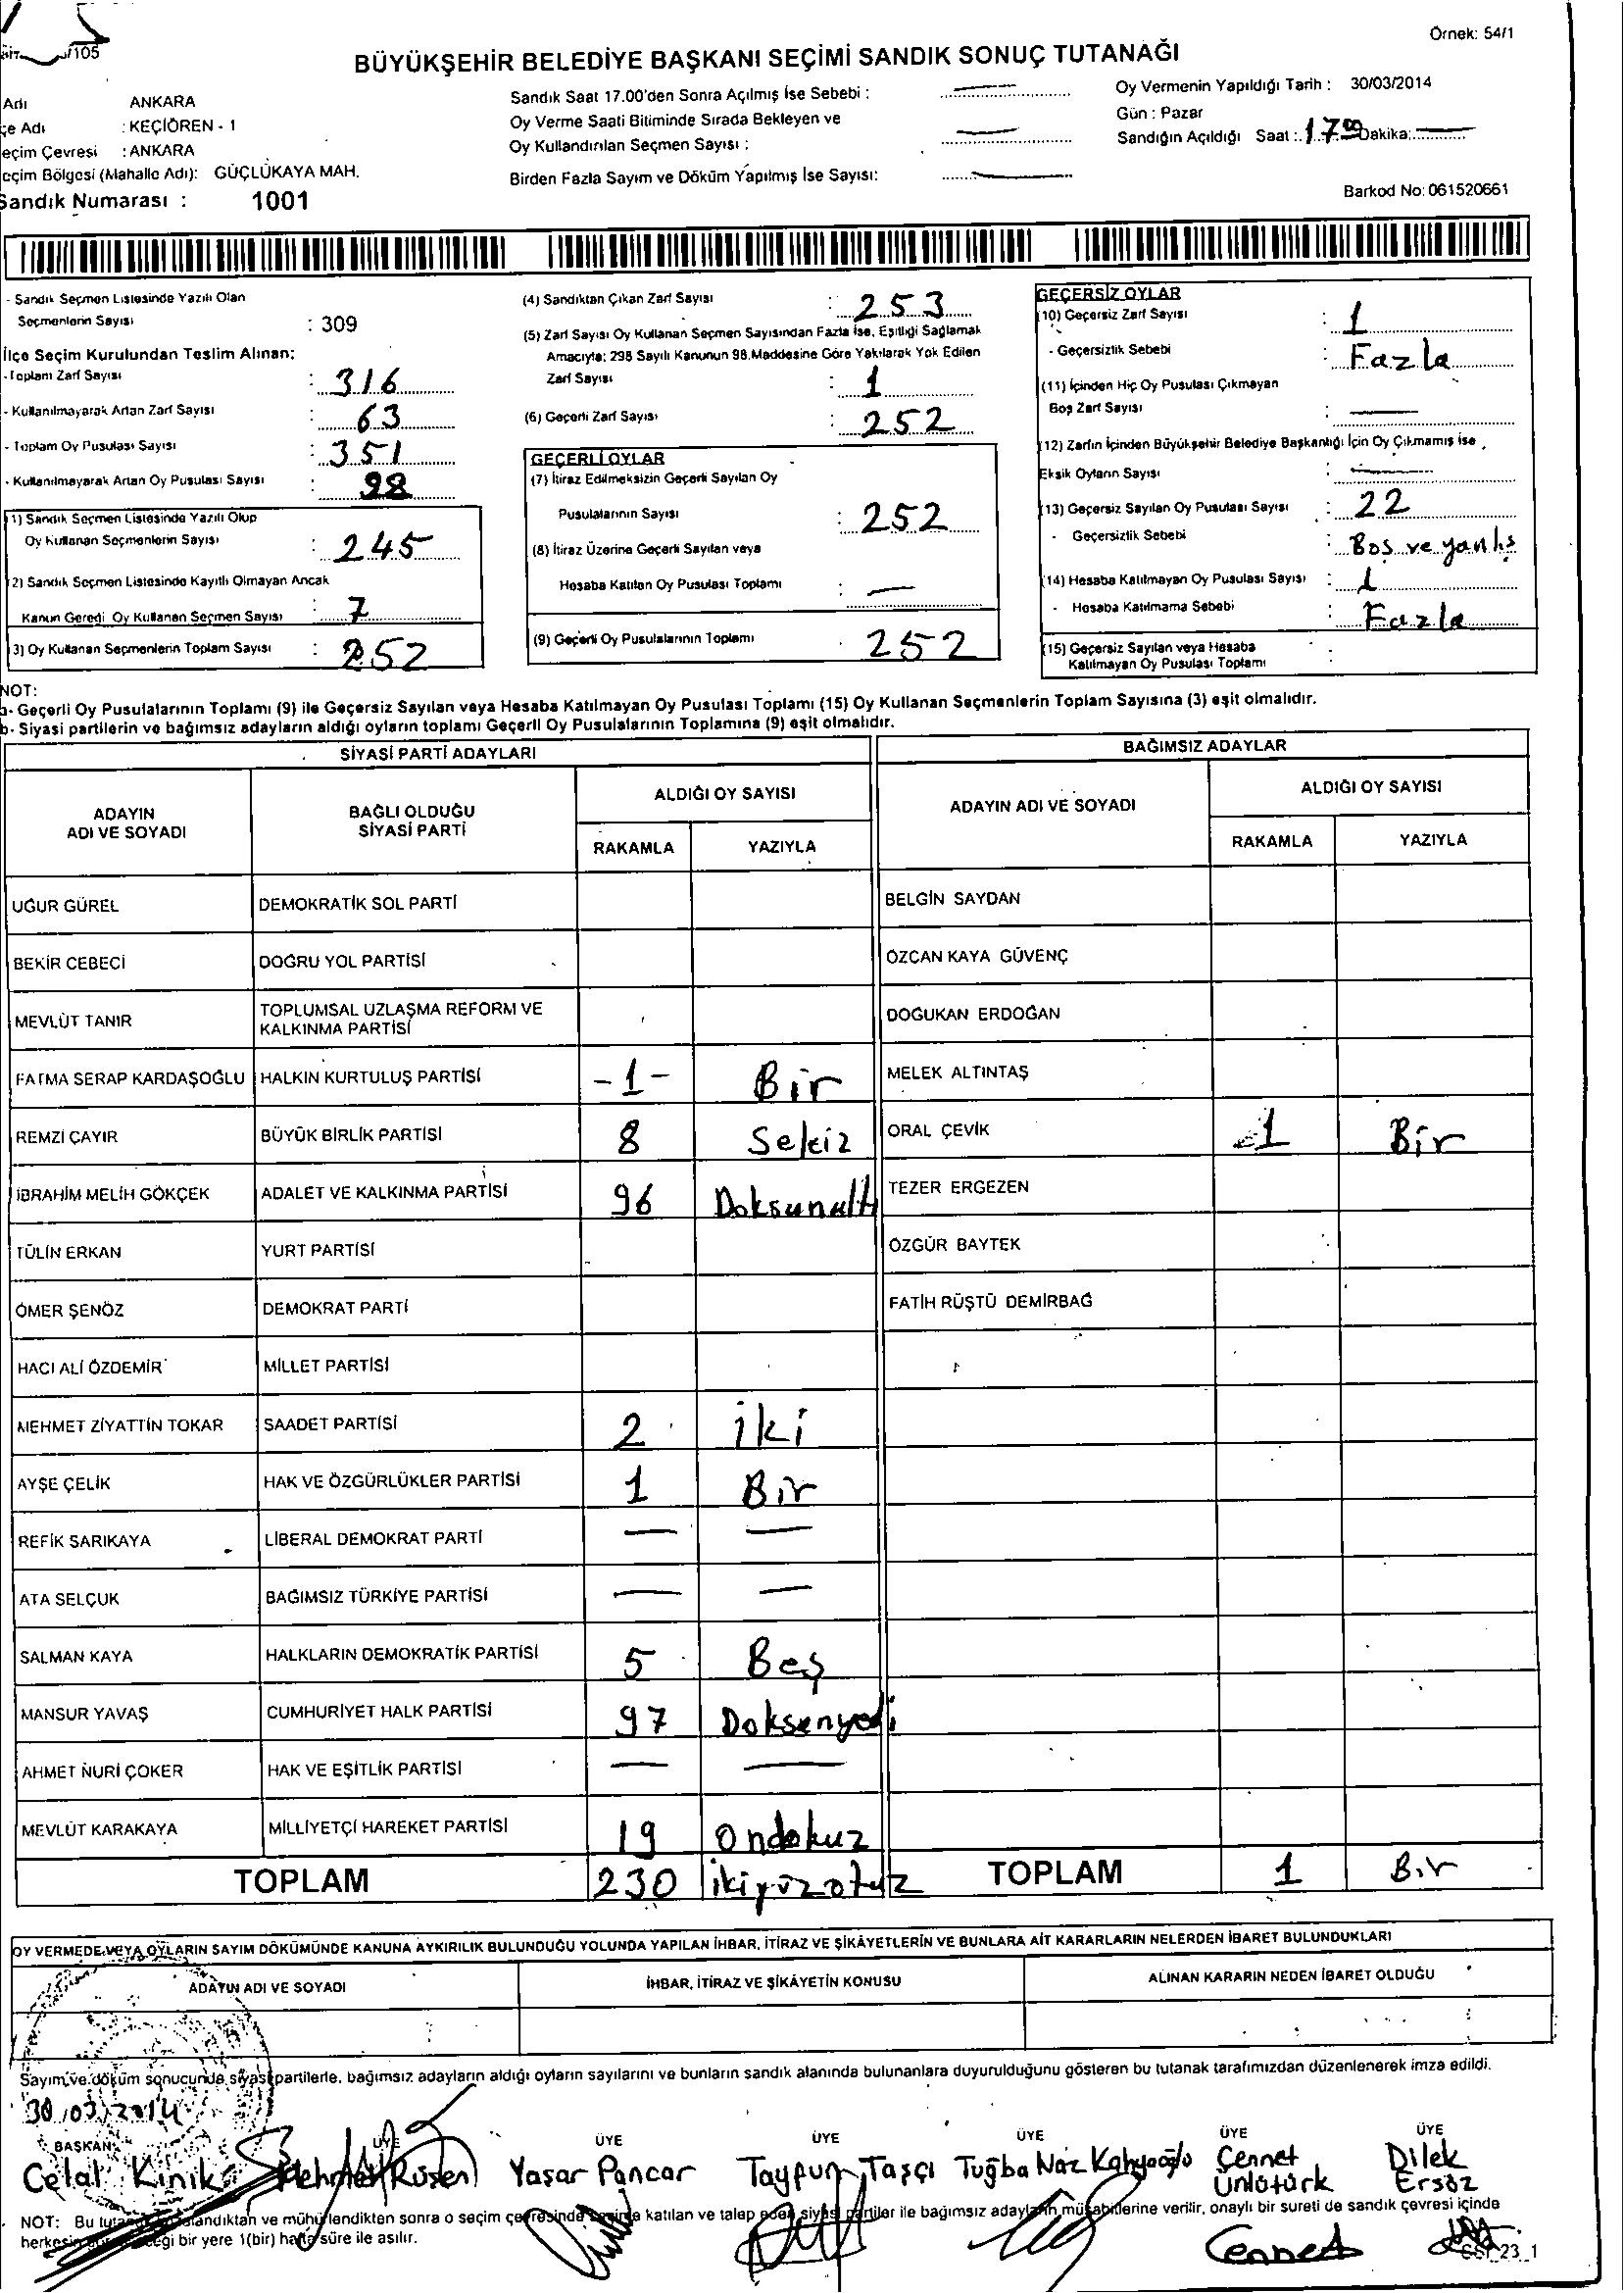 Örnek: 54/1
/105
BÜYÜKŞEHİR BELEDİYE BAŞKANI SEÇİMİ SANDIK SONUÇ TUTANAĞI
Adı ANKARA
çe Adı : KEÇİÖREN - 1
eçim Çevresi : ANKARA
eçim Bölgesi (Mahalle Adı): GÜÇLÜKAYA MAH.
Sandık Numarası : 1001
Sandık Saat 17.00'den Sonra Açılmış İse Sebebi :
Oy Verme Saati Bitiminde Sırada Bekleyen ve
Oy Kullandırılan Seçmen Sayısı :
Birden Fazla Sayım ve Döküm Yapılmış İse Sayısı:
Oy Vermenin Yapıldığı Tarih : 30/03/2014
Gün : Pazar
Sandığın Açıldığı Saat : 17 00 Dakika:
Barkod No: 061520661
- Sandık Seçmen Listesinde Yazılı Olan
Seçmenlerin Sayısı : 309
İlçe Seçim Kurulundan Teslim Alınan:
- Toplam Zarf Sayısı : 316
- Kullanılmayarak Artan Zarf Sayısı : 63
- Toplam Oy Pusulası Sayısı : 351
- Kullanılmayarak Artan Oy Pusulası Sayısı : 98
1) Sandık Seçmen Listesinde Yazılı Olup
Oy Kullanan Seçmenlerin Sayısı : 245
2) Sandık Seçmen Listesinde Kayıtlı Olmayan Ancak
Kanun Gereği Oy Kullanan Seçmen Sayısı : 7
3) Oy Kullanan Seçmenlerin Toplam Sayısı : 252
(4) Sandıktan Çıkan Zarf Sayısı : 253
(5) Zarf Sayısı Oy Kullanan Seçmen Sayısından Fazla İse, Eşitliği Sağlamak
Amacıyla; 298 Sayılı Kanunun 98.Maddesine Göre Yakılarak Yok Edilen
Zarf Sayısı : 1
(6) Geçerli Zarf Sayısı : 252
GEÇERLİ OYLAR
(7) İtiraz Edilmeksizin Geçerli Sayılan Oy
Pusulalarının Sayısı : 252
(8) İtiraz Üzerine Geçerli Sayılan veya
Hesaba Katılan Oy Pusulası Toplamı : —
(9) Geçerli Oy Pusulalarının Toplamı : 252
GEÇERSİZ OYLAR
(10) Geçersiz Zarf Sayısı : 1
- Geçersizlik Sebebi : Fazla
(11) İçinden Hiç Oy Pusulası Çıkmayan
Boş Zarf Sayısı : —
(12) Zarfın İçinden Büyükşehir Belediye Başkanlığı İçin Oy Çıkmamış İse ,
Eksik Oyların Sayısı : —
(13) Geçersiz Sayılan Oy Pusulası Sayısı : 22
- Geçersizlik Sebebi : Boş ve yanlış
(14) Hesaba Katılmayan Oy Pusulası Sayısı : 1
- Hesaba Katılmama Sebebi : Fazla
(15) Geçersiz Sayılan veya Hesaba
Katılmayan Oy Pusulası Toplamı :
NOT:
a- Geçerli Oy Pusulalarının Toplamı (9) ile Geçersiz Sayılan veya Hesaba Katılmayan Oy Pusulası Toplamı (15) Oy Kullanan Seçmenlerin Toplam Sayısına (3) eşit olmalıdır.
b- Siyasi partilerin ve bağımsız adayların aldığı oyların toplamı Geçerli Oy Pusulalarının Toplamına (9) eşit olmalıdır.
SİYASİ PARTİ ADAYLARI BAĞIMSIZ ADAYLAR
ADAYIN ADI VE SOYADI BAĞLI OLDUĞU SİYASİ PARTİ ALDIĞI OY SAYISI ADAYIN ADI VE SOYADI ALDIĞI OY SAYISI
RAKAMLA YAZIYLA RAKAMLA YAZIYLA
UĞUR GÜREL DEMOKRATİK SOL PARTİ BELGİN SAYDAN
BEKİR CEBECİ DOĞRU YOL PARTİSİ ÖZCAN KAYA GÜVENÇ
MEVLÜT TANIR TOPLUMSAL UZLAŞMA REFORM VE KALKINMA PARTİSİ DOĞUKAN ERDOĞAN
FATMA SERAP KARDAŞOĞLU HALKIN KURTULUŞ PARTİSİ -1- Bir MELEK ALTINTAŞ
REMZİ ÇAYIR BÜYÜK BİRLİK PARTİSİ 8 Sekiz ORAL ÇEVİK 1 Bir
İBRAHİM MELİH GÖKÇEK ADALET VE KALKINMA PARTİSİ 96 Doksanaltı TEZER ERGEZEN
TÜLİN ERKAN YURT PARTİSİ ÖZGÜR BAYTEK
ÖMER ŞENÖZ DEMOKRAT PARTİ FATİH RÜŞTÜ DEMİRBAĞ
HACI ALİ ÖZDEMİR MİLLET PARTİSİ
MEHMET ZİYATTİN TOKAR SAADET PARTİSİ 2 iki
AYŞE ÇELİK HAK VE ÖZGÜRLÜKLER PARTİSİ 1 Bir
REFİK SARIKAYA LİBERAL DEMOKRAT PARTİ — —
ATA SELÇUK BAĞIMSIZ TÜRKİYE PARTİSİ — —
SALMAN KAYA HALKLARIN DEMOKRATİK PARTİSİ 5 Beş
MANSUR YAVAŞ CUMHURİYET HALK PARTİSİ 97 Doksenyedi
AHMET NURİ ÇOKER HAK VE EŞİTLİK PARTİSİ — —
MEVLÜT KARAKAYA MİLLİYETÇİ HAREKET PARTİSİ 19 Ondokuz
TOPLAM 230 ikiyüzotuz TOPLAM 1 Bir
OY VERMEDE VEYA OYLARIN SAYIM DÖKÜMÜNDE KANUNA AYKIRILIK BULUNDUĞU YOLUNDA YAPILAN İHBAR, İTİRAZ VE ŞİKÂYETLERİN VE BUNLARA AİT KARARLARIN NELERDEN İBARET BULUNDUKLARI
ADAYIN ADI VE SOYADI İHBAR, İTİRAZ VE ŞİKÂYETİN KONUSU ALINAN KARARIN NEDEN İBARET OLDUĞU
Sayım ve döküm sonucunda siyasi partilerle, bağımsız adayların aldığı oyların sayılarını ve bunların sandık alanında bulunanlara duyurulduğunu gösteren bu tutanak tarafımızdan düzenlenerek imza edildi.
30/03/2014
BAŞKAN ÜYE ÜYE ÜYE ÜYE ÜYE ÜYE
Celal Kınık Mehmet Rüsen Yaşar Pancar Tayfun Taşçı Tuğba Naz Kahyaoğlu Cennet Ünlütürk Dilek Ersöz
NOT: Bu tutanak ve mühürlendikten sonra o seçim çevresinde seçime katılan ve talep eden siyasi partiler ile bağımsız adayların müşahitlerine verilir, onaylı bir sureti de sandık çevresi içinde
herkesin bir yere 1(bir) hafta süre ile asılır.
Cennet
23_1